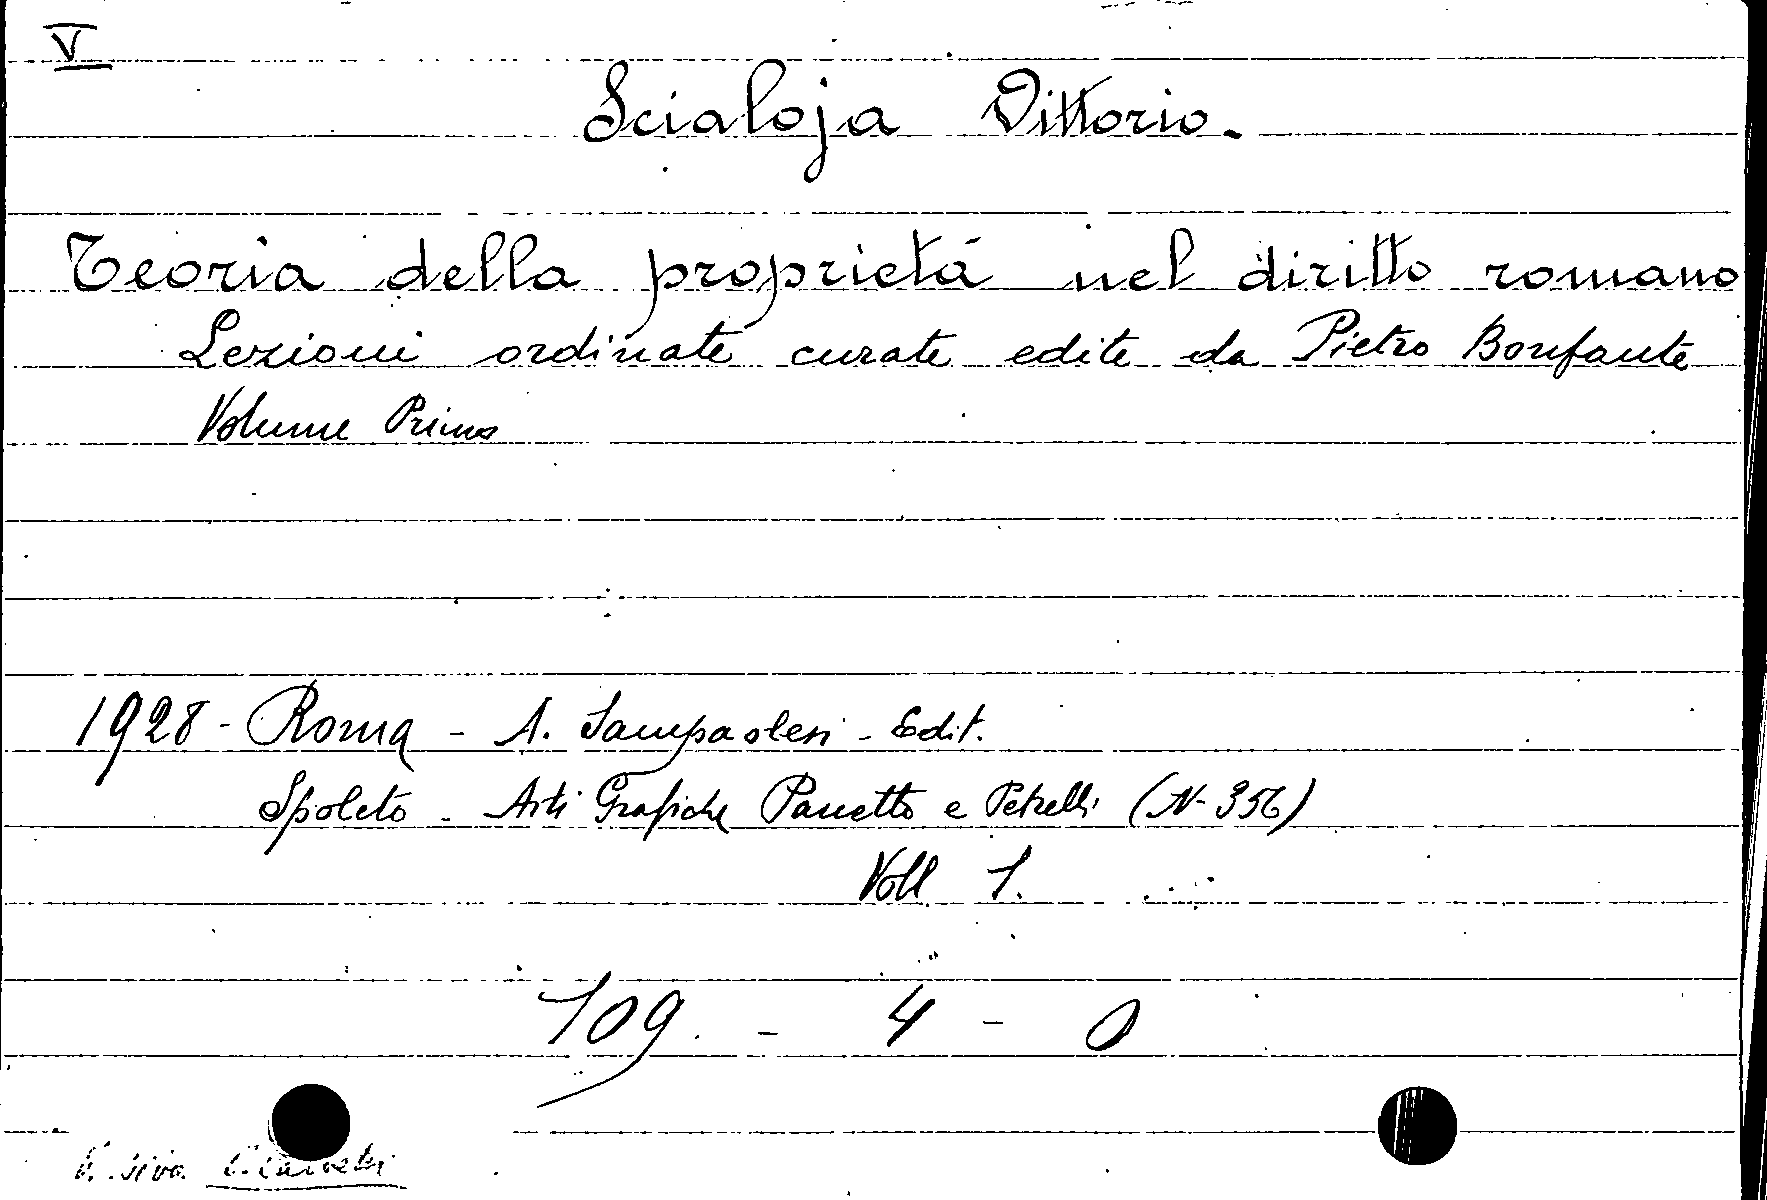 V
Scialoja Vittorio.
Teoria della proprietá nel diritto romano
Lezioni ordinate curate edite da Pietro Bonfante
Volume Primo
1928 - Roma - A. Sampaolesi - Edit.
Spoleto - Arti Grafiche Panetto e Petrelli (N- 356)
Voll 1.
109. - 4 - 0